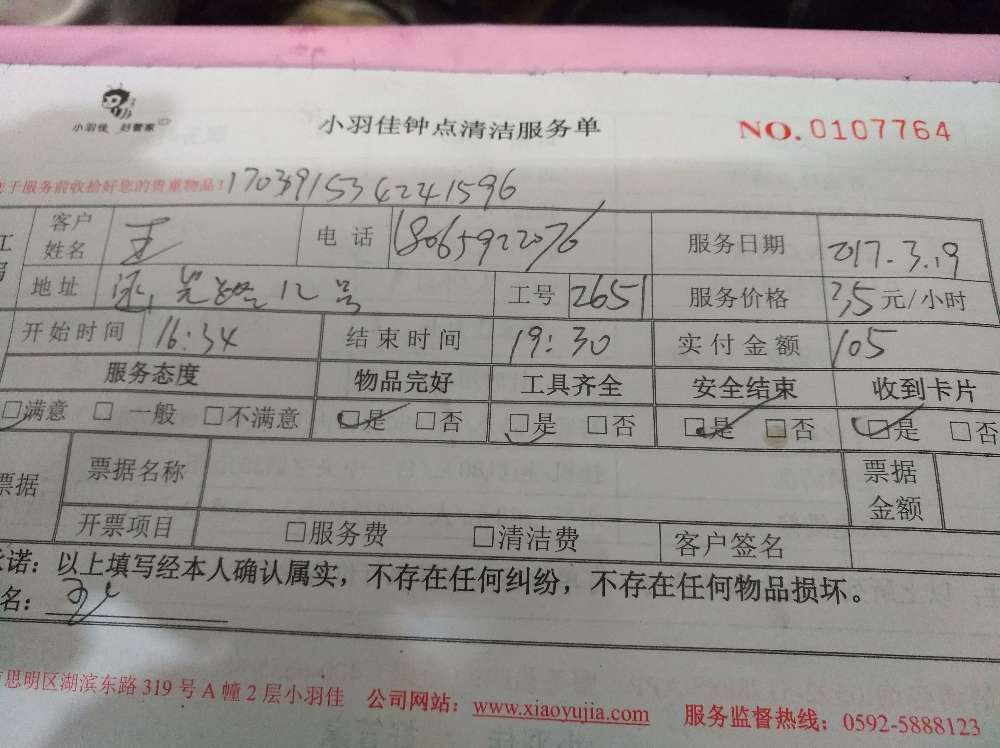 小羽佳 好管家
小羽佳钟点清洁服务单
NO.0107764
于服务前收拾好您的贵重物品! 1703915342241596
客户姓名 王 电话 18065922076 服务日期 2017.3.19
地址 12号 工号 2651 服务价格 35元/小时
开始时间 16:34 结束时间 19:30 实付金额 105
服务态度 物品完好 工具齐全 安全结束 收到卡片
□满意 □ 一般 □不满意 □是 □否 □是 □否 □是 □否 □是 □否
票据 票据名称 票据金额
开票项目 □服务费 □清洁费 客户签名
诺：以上填写经本人确认属实，不存在任何纠纷，不存在任何物品损坏。
名：
思明区湖滨东路319号A幢2层小羽佳 公司网站：www.xiaoyujia.com 服务监督热线：0592-5888123